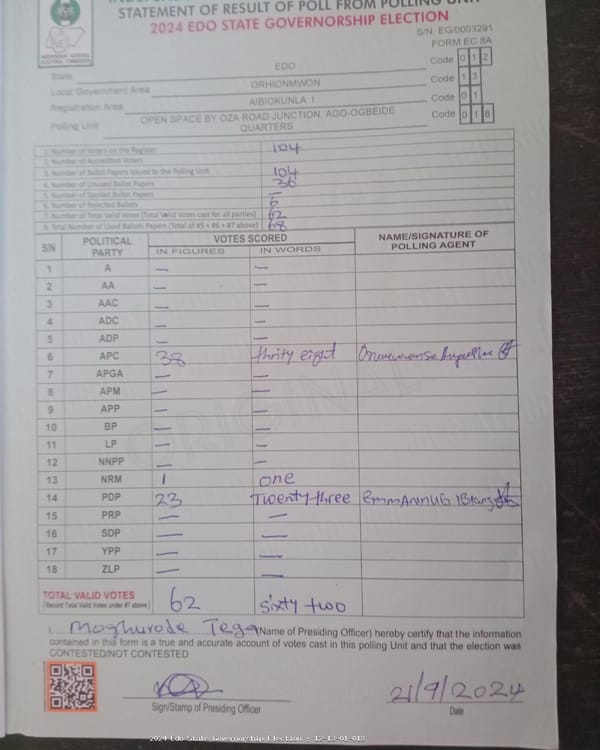 STATEMENT OF RESULT OF POLL FROM POLLING UNIT
2024 EDO STATE GOVERNORSHIP ELECTION
S/N. EG/0003291
FORM EC 8A
State EDO Code 0 1 2
Local Government Area ORHIONMWON Code 1 3
Registration Area AIBIOKUNLA I Code 0 1
Polling Unit OPEN SPACE BY OZA ROAD JUNCTION, AGO-OGBEIDE QUARTERS Code 0 1 8
1. Number of Voters on the Register 104
2. Number of Accredited Voters
3. Number of Ballot Papers Issued to the Polling Unit 104
4. Number of Unused Ballot Papers 36
5. Number of Spoiled Ballot Papers —
6. Number of Rejected Ballots 6
7. Number of Total Valid Votes (Total Valid Votes cast for all parties) 62
8. Total Number of Used Ballots Papers (Total of #5 + #6 + #7 above) 68
S/N POLITICAL PARTY VOTES SCORED NAME/SIGNATURE OF POLLING AGENT
IN FIGURES IN WORDS
1 A — —
2 AA — —
3 AAC — —
4 ADC — —
5 ADP — —
6 APC 38 thrity eight
7 APGA — —
8 APM — —
9 APP — —
10 BP — —
11 LP — —
12 NNPP — —
13 NRM 1 one
14 PDP 23 Twenty three
15 PRP — —
16 SDP — —
17 YPP — —
18 ZLP — —
TOTAL VALID VOTES 62 sixty two
(Record Total Valid Votes under #7 above)
I, Moghurode Tega (Name of Presiding Officer) hereby certify that the information
contained in this form is a true and accurate account of votes cast in this polling Unit and that the election was
CONTESTED/NOT CONTESTED
21/9/2024
Sign/Stamp of Presiding Officer Date
2024 Edo State Governorship Election : 12-13-01-018